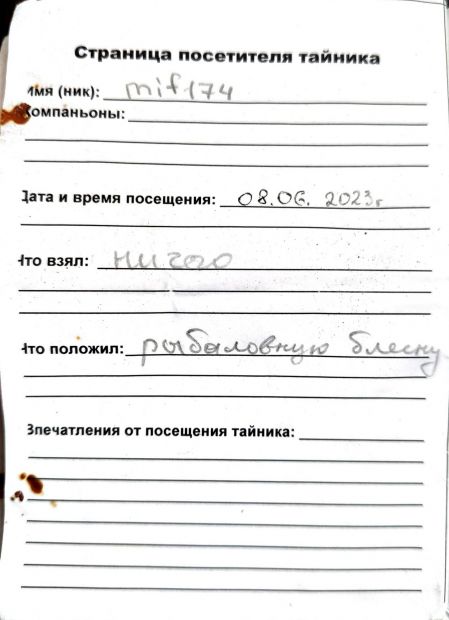 Страница посетителя тайника
Имя (ник): mif174
Компаньоны:
Дата и время посещения: 08.06. 2023г
Что взял: ничего
Что положил: рыбаловную блесну
Впечатления от посещения тайника: